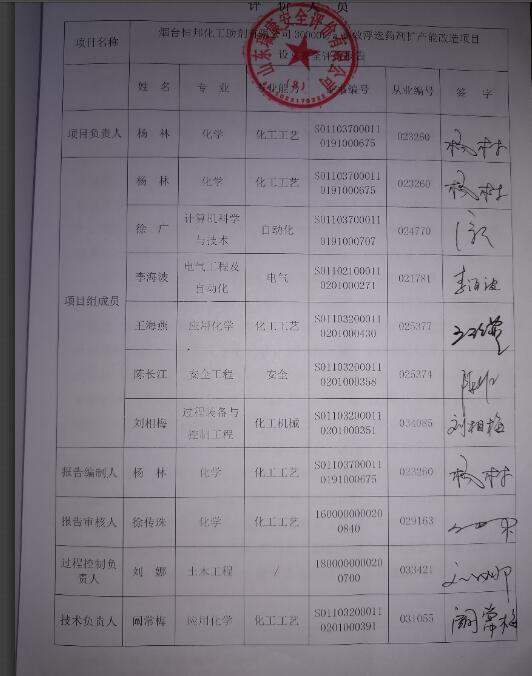 评 价 人 员
项目名称 烟台恒邦化工助剂有限公司 30000t/a 高效浮选药剂扩产能改造项目
设 安全评价报告
姓 名 专 业 专业能力 证书编号 从业编号 签 字
项目负责人 杨 林 化学 化工工艺 S011037000110191000675 023260 杨林
项目组成员 杨 林 化学 化工工艺 S011037000110191000675 023260 杨林
徐 广 计算机科学与技术 自动化 S011037000110191000707 024770
李海波 电气工程及自动化 电气 S011021000110201000271 021781 李海波
王海燕 应用化学 化工工艺 S011032000110201000430 025377
陈长江 安全工程 安全 S011032000110201000358 025374
刘相梅 过程装备与控制工程 化工机械 S011032000110201000351 034085 刘相梅
报告编制人 杨 林 化学 化工工艺 S011037000110191000675 023260 杨林
报告审核人 徐传珠 化学 化工工艺 1600000000200840 029163
过程控制负责人 刘 娜 土木工程 / 1800000000200700 033421 刘娜
技术负责人 阚常梅 应用化学 化工工艺 S011032000110201000391 031055 阚常梅